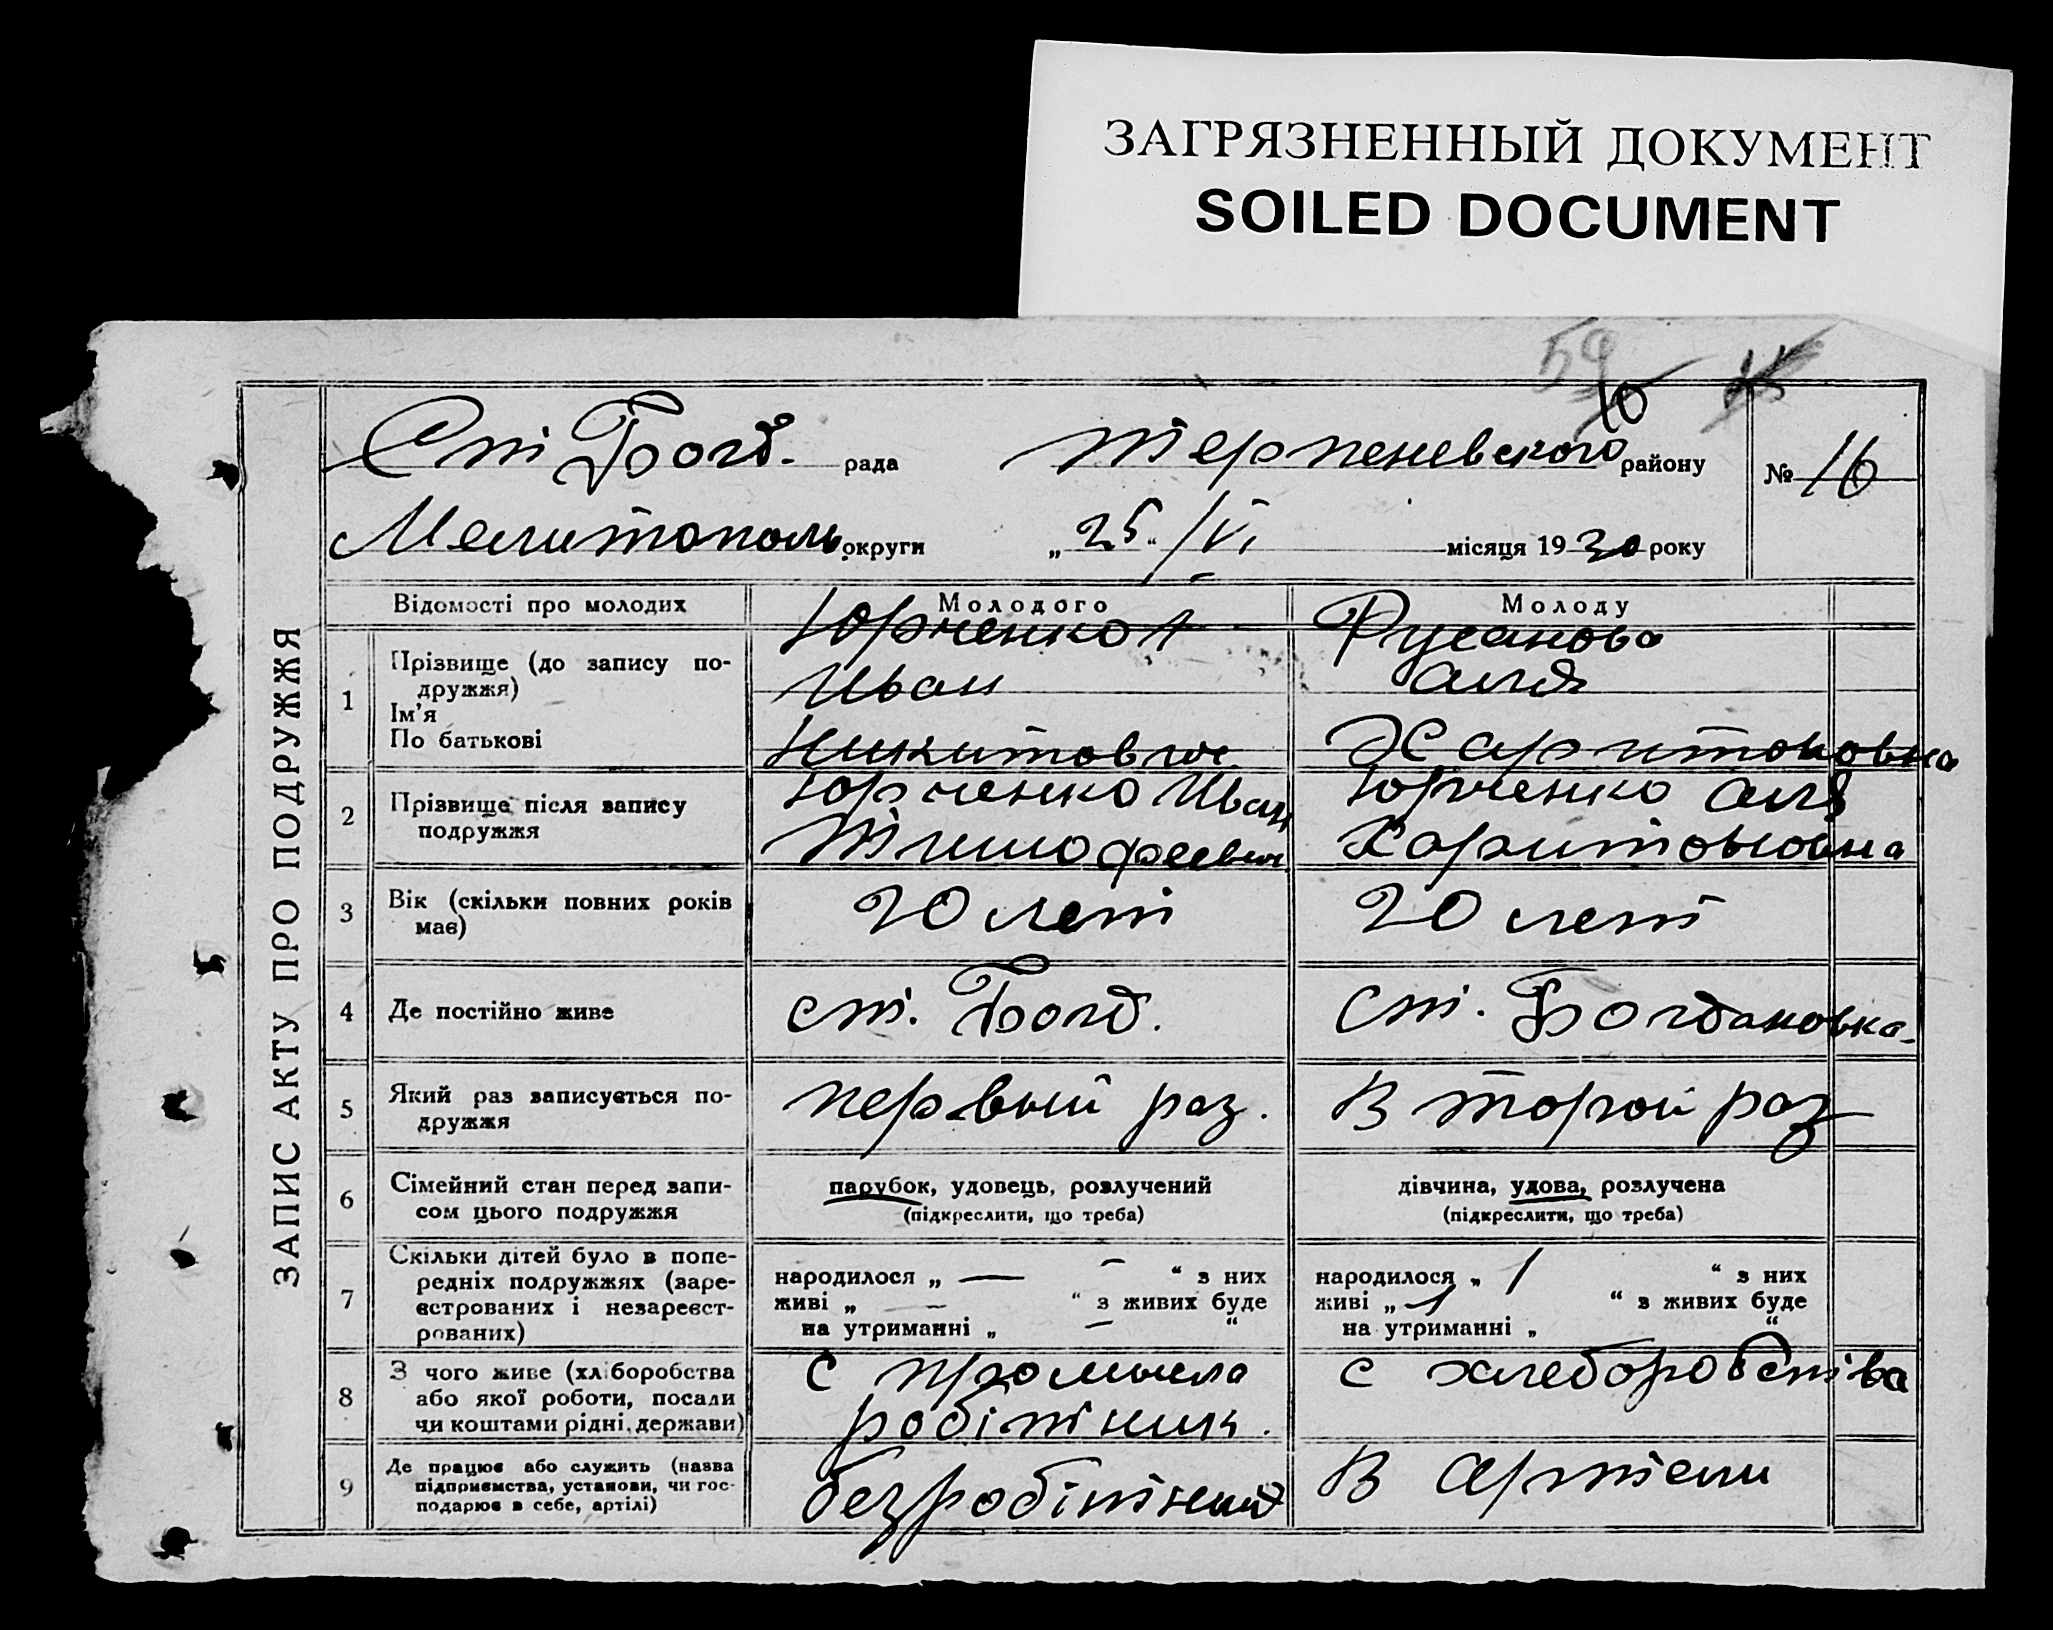 ЗАГРЯЗНЕННЫЙ ДОКУМЕНТ
SOILED DOCUMENT
59
10
ЗАПИС АКТУ ПРО ПОДРУЖЖЯ
Ст Богд. рада Терпеневского району № 16
Мелитополь округи „25“ /VI місяця 1930 року
Відомості про молодих Молодого Молоду
1 Прізвище (до запису подружжя) Юрченко Русанова
Ім'я Иван Аля
По батькові Никитович Харитоновна
2 Прізвище після запису Юрченко Иван Юрченко Аля
подружжя Тимофеевич Харитоновна
3 Вік (скільки повних років 20 лет 20 лет
має)
4 Де постійно живе ст. Богд. Ст. Богдановка
5 Який раз записується по- первый раз. Второй раз
дружжя
6 Сімейний стан перед запи- парубок, удовець, розлучений дівчина, удова, розлучена
сом цього подружжя (підкреслити, що треба) (підкреслити, що треба)
7 Скільки дітей було в попе-
редніх подружжях (заре- народилося „ — “ з них народилося „ 1 “ з них
єстрованих і незареєст- живі „ — “ з живих буде живі „ 1 “ з живих буде
рованих) на утриманні „ — “ на утриманні „ “
8 З чого живе (хліборобства с промысла с хлеборобства
або якої роботи, посади робітник.
чи коштами рідні, держави)
9 Де працює або служить (назва безробітний В Артели
підприємства, установи, чи гос-
подарює в себе, артілі)